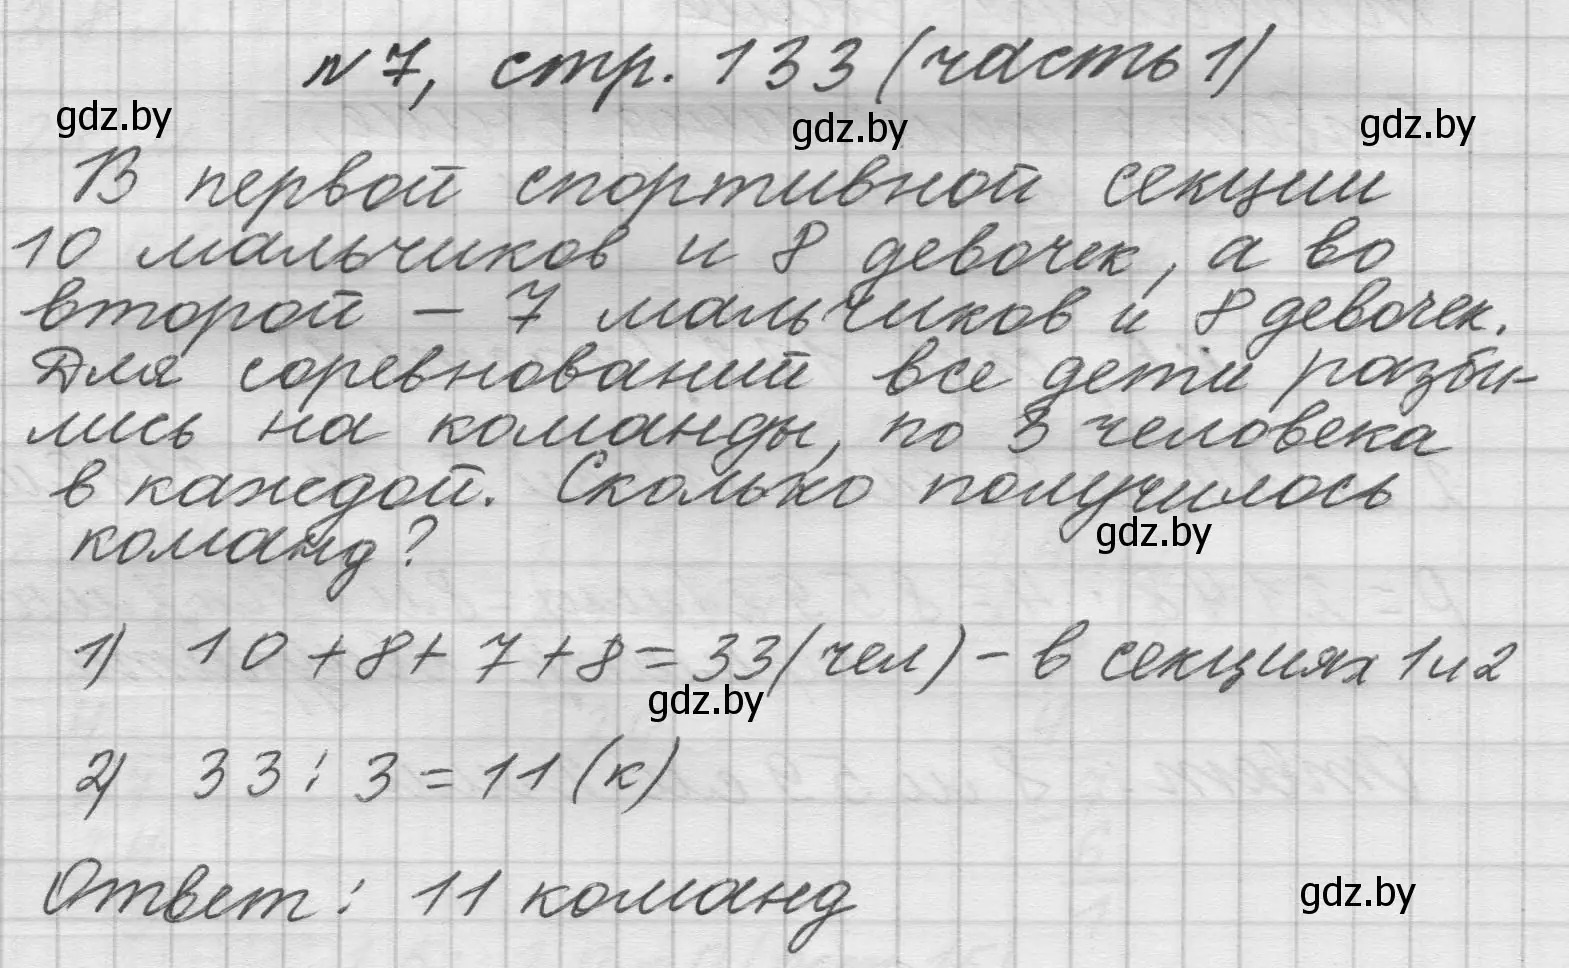 № 7, стр. 133 (часть 1)
gdz.by
gdz.by
gdz.by
В первой спортивной секции
10 мальчиков и 8 девочек, а во
второй – 7 мальчиков и 8 девочек.
Для соревнований все дети разби-
лись на команды, по 3 человека
в каждой. Сколько получилось
gdz.by
команд?
1) 10 + 8 + 7 + 8 = 33 (чел) – в секциях 1 и 2
gdz.by
2) 33 : 3 = 11 (к)
Ответ: 11 команд
gdz.by